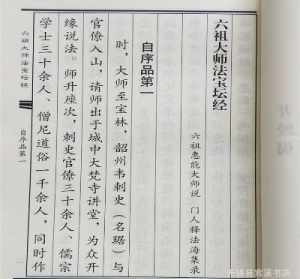 六祖大师法宝坛经
六祖惠能大师说 门人释法海集录
自序品第一
时，大师至宝林，韶州韦刺史（名璩）与
官僚入山，请师出于城中大梵寺讲堂，为众开
缘说法。师升座次，刺史官僚三十余人、儒宗
学士三十余人、僧尼道俗一千余人，同时作
六祖大师法宝坛经
自序品第一